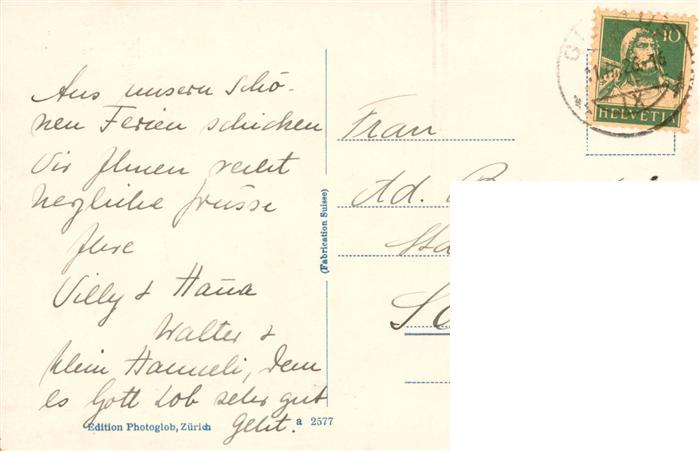 Aus unsern schö-
nen Ferien schicken
Wir Ihnen recht
herzliche Grüsse
Ihre
Willy & Hana
Walter &
klein Hanneli, dem
es Gott Lob sehr gut
geht.
Edition Photoglob, Zürich
a 2577
(Fabrication Suisse)
10
HELVETIA
Frau
Ad.